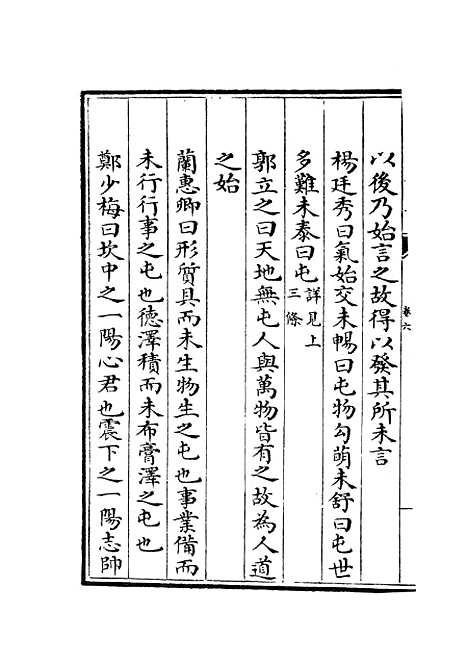 卷六
以後乃始言之故得以發其所未言
楊廷秀曰氣始交未暢曰屯物勾萌未舒曰屯世
多難未泰曰屯詳見上三條
郭立之曰天地無屯人與萬物皆有之故為人道
之始
蘭惠卿曰形質具而未生物生之屯也事業備而
未行行事之屯也德澤積而未布膏澤之屯也
鄭少梅曰坎中之一陽心君也震下之一陽志帥